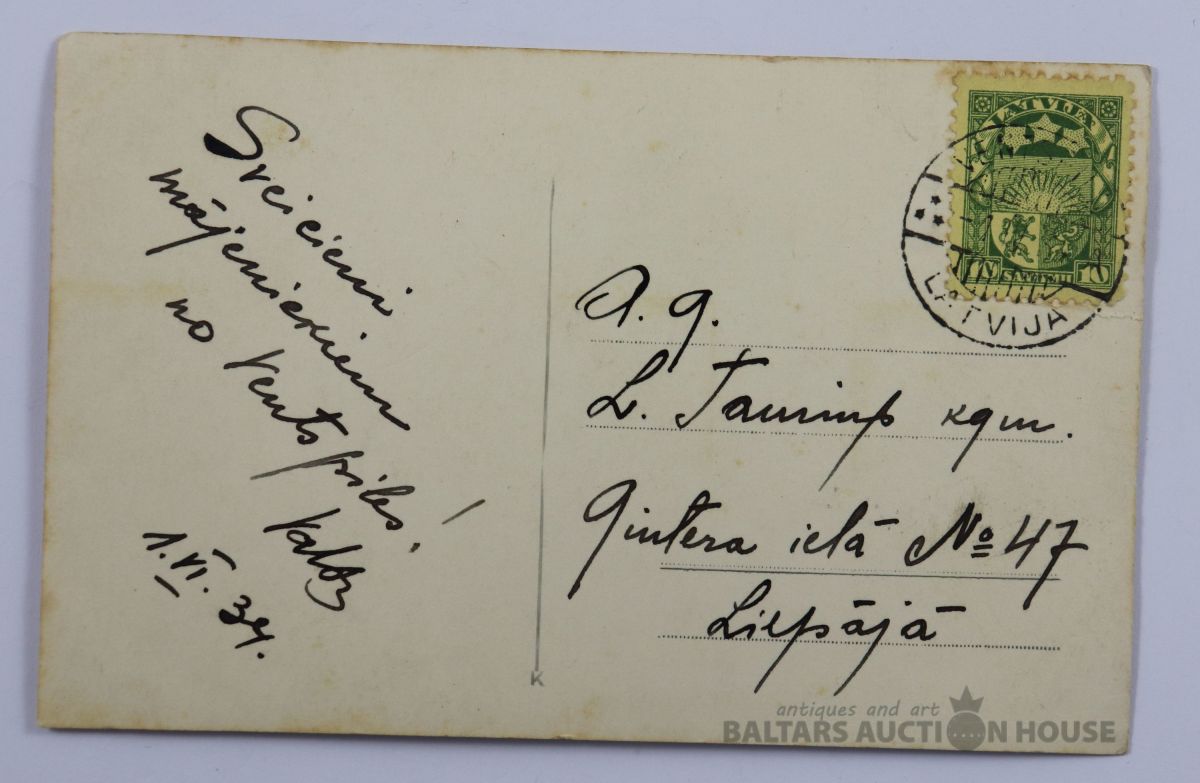 Sveicieni
mājeniekiem
no Ventspils!
1.VI.34.
LATVIJA
LATVIJA
10 SANTIMI 10
A. g.
L. Tauriņš kgm.
Gintera ielā № 47
Liepājā
K
antiques and art
BALTARS AUCTION HOUSE